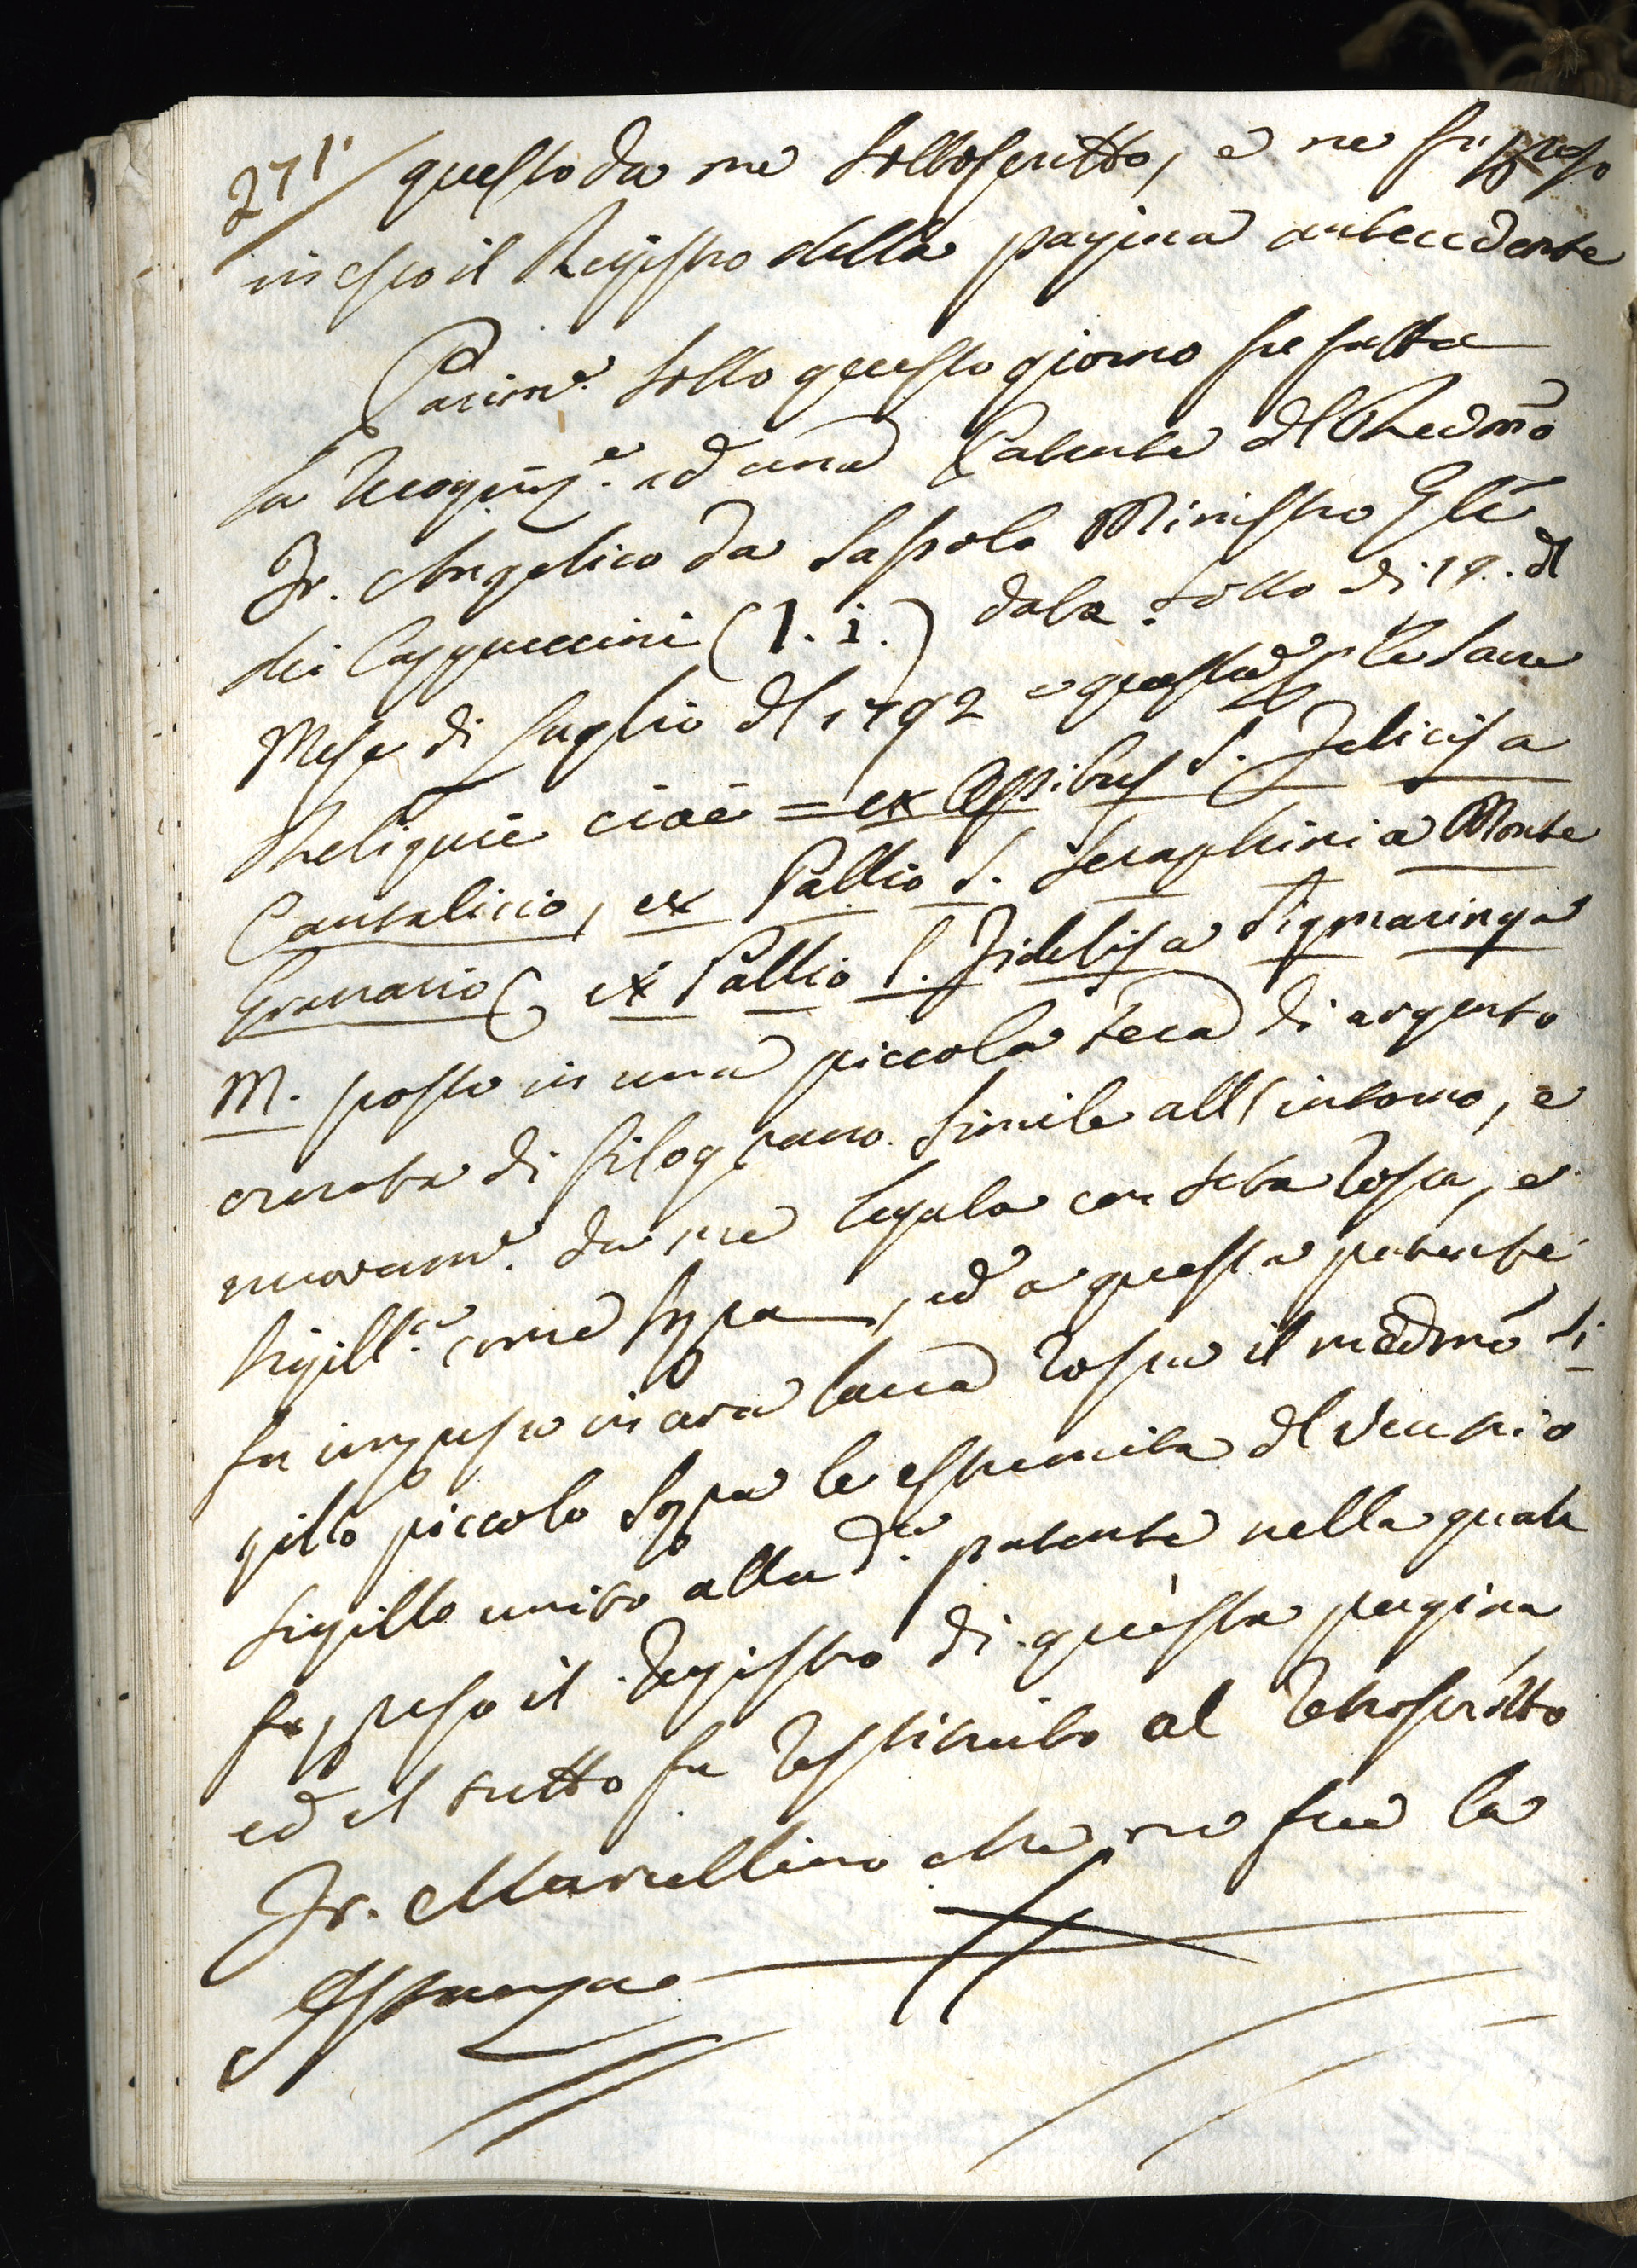 271.
questo da me sottoscritto, e ne fù preso
in esso il Registro della pagina antecedente
Parim.e sotto questo giorno fu fatta
la Recogniz.e ad una Patente dl Redm̃o
Fr. Angelico da Sassolo Ministro Gñle
dei Cappuccini (l. i.) data sotto di 19. dl
Mese di Luglio dl 1792 e questa le Sacre
Reliquie cioè = ex Ossibus S. Felicis a
Cantalicio, ex Pallio S. Seraphini a Monte
Granario, ex Pallio S. Fidelis a Sigmaringa
M. poste in una piccola teca di argento
ornata di filograno simile all'intorno, e
nuovam.e da me legata con seta rossa, e
sigill.ta come sopra, ed a questa patente
fu impresso in cera lacca rossa il medmõ si
gillo piccolo sopra le estremità dl vecchio
sigillo unito alla d.a patente nella quale
fu preso il Registro di questa pagina
ed il tutto fu restituito al retroscritto
Fr. Marcellino che ne fece la
Istanza